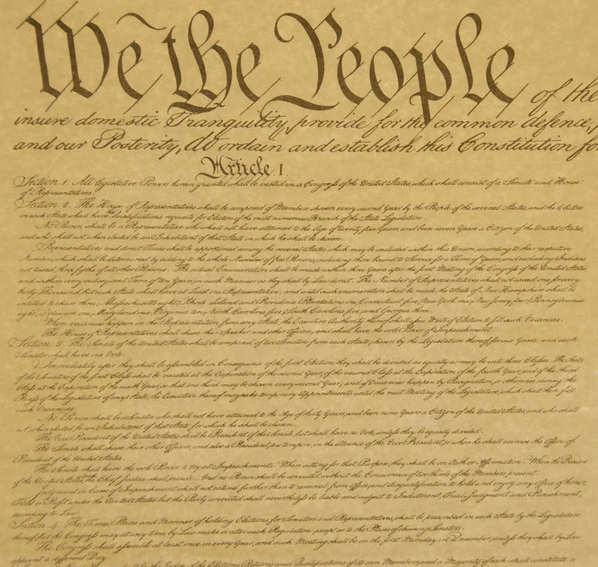 We the People of the
insure domestic Tranquility, provide for the common defence,
and our Posterity, do ordain and establish this Constitution fo
Article. I
Section. 1. All legislative Powers herein granted shall be vested in a Congress of the United States, which shall consist of a Senate and House
of Representatives.
Section. 2. The House of Representatives shall be composed of Members chosen every second Year by the People of the several States, and the Electors
in each State shall have the Qualifications requisite for Electors of the most numerous Branch of the State Legislature.
No Person shall be a Representative who shall not have attained to the Age of twenty five Years, and been seven Years a Citizen of the United States,
and who shall not, when elected, be an Inhabitant of that State in which he shall be chosen.
Representatives and direct Taxes shall be apportioned among the several States which may be included within this Union, according to their respective
Numbers, which shall be determined by adding to the whole Number of free Persons, including those bound to Service for a Term of Years, and excluding Indians
not taxed, three fifths of all other Persons. The actual Enumeration shall be made within three Years after the first Meeting of the Congress of the United States,
and within every subsequent Term of ten Years, in such Manner as they shall by Law direct. The Number of Representatives shall not exceed one for every
thirty Thousand, but each State shall have at Least one Representative; and until such enumeration shall be made, the State of New Hampshire shall be
entitled to chuse three, Massachusetts eight, Rhode Island and Providence Plantations one, Connecticut five, New York six, New Jersey four, Pennsylvania
eight, Delaware one, Maryland six, Virginia ten, North Carolina five, South Carolina five, and Georgia three.
When vacancies happen in the Representation from any State, the Executive Authority thereof shall issue Writs of Election to fill such Vacancies.
The House of Representatives shall chuse their Speaker and other Officers; and shall have the sole Power of Impeachment.
Section. 3. The Senate of the United States shall be composed of two Senators from each State, chosen by the Legislature thereof, for six Years; and each
Senator shall have one Vote.
Immediately after they shall be assembled in Consequence of the first Election, they shall be divided as equally as may be into three Classes. The Seats
of the Senators of the first Class shall be vacated at the Expiration of the second Year, of the second Class at the Expiration of the fourth Year, and of the third
Class at the Expiration of the sixth Year, so that one third may be chosen every second Year; and if Vacancies happen by Resignation, or otherwise, during the
Recess of the Legislature of any State, the Executive thereof may make temporary Appointments until the next Meeting of the Legislature, which shall then fill
such Vacancies.
No Person shall be a Senator who shall not have attained to the Age of thirty Years, and been nine Years a Citizen of the United States, and who shall
not, when elected, be an Inhabitant of that State for which he shall be chosen.
The Vice President of the United States shall be President of the Senate, but shall have no Vote, unless they be equally divided.
The Senate shall chuse their other Officers, and also a President pro tempore, in the Absence of the Vice President, or when he shall exercise the Office of
President of the United States.
The Senate shall have the sole Power to try all Impeachments. When sitting for that Purpose, they shall be on Oath or Affirmation. When the President
of the United States is tried, the Chief Justice shall preside: And no Person shall be convicted without the Concurrence of two thirds of the Members present.
Judgment in Cases of Impeachment shall not extend further than to removal from Office, and disqualification to hold and enjoy any Office of honor,
Trust or Profit under the United States: but the Party convicted shall nevertheless be liable and subject to Indictment, Trial, Judgment and Punishment,
according to Law.
Section. 4. The Times, Places and Manner of holding Elections for Senators and Representatives, shall be prescribed in each State by the Legislature
thereof; but the Congress may at any time by Law make or alter such Regulations, except as to the Places of chusing Senators.
The Congress shall assemble at least once in every Year, and such Meeting shall be on the first Monday in December, unless they shall by Law
appoint a different Day.